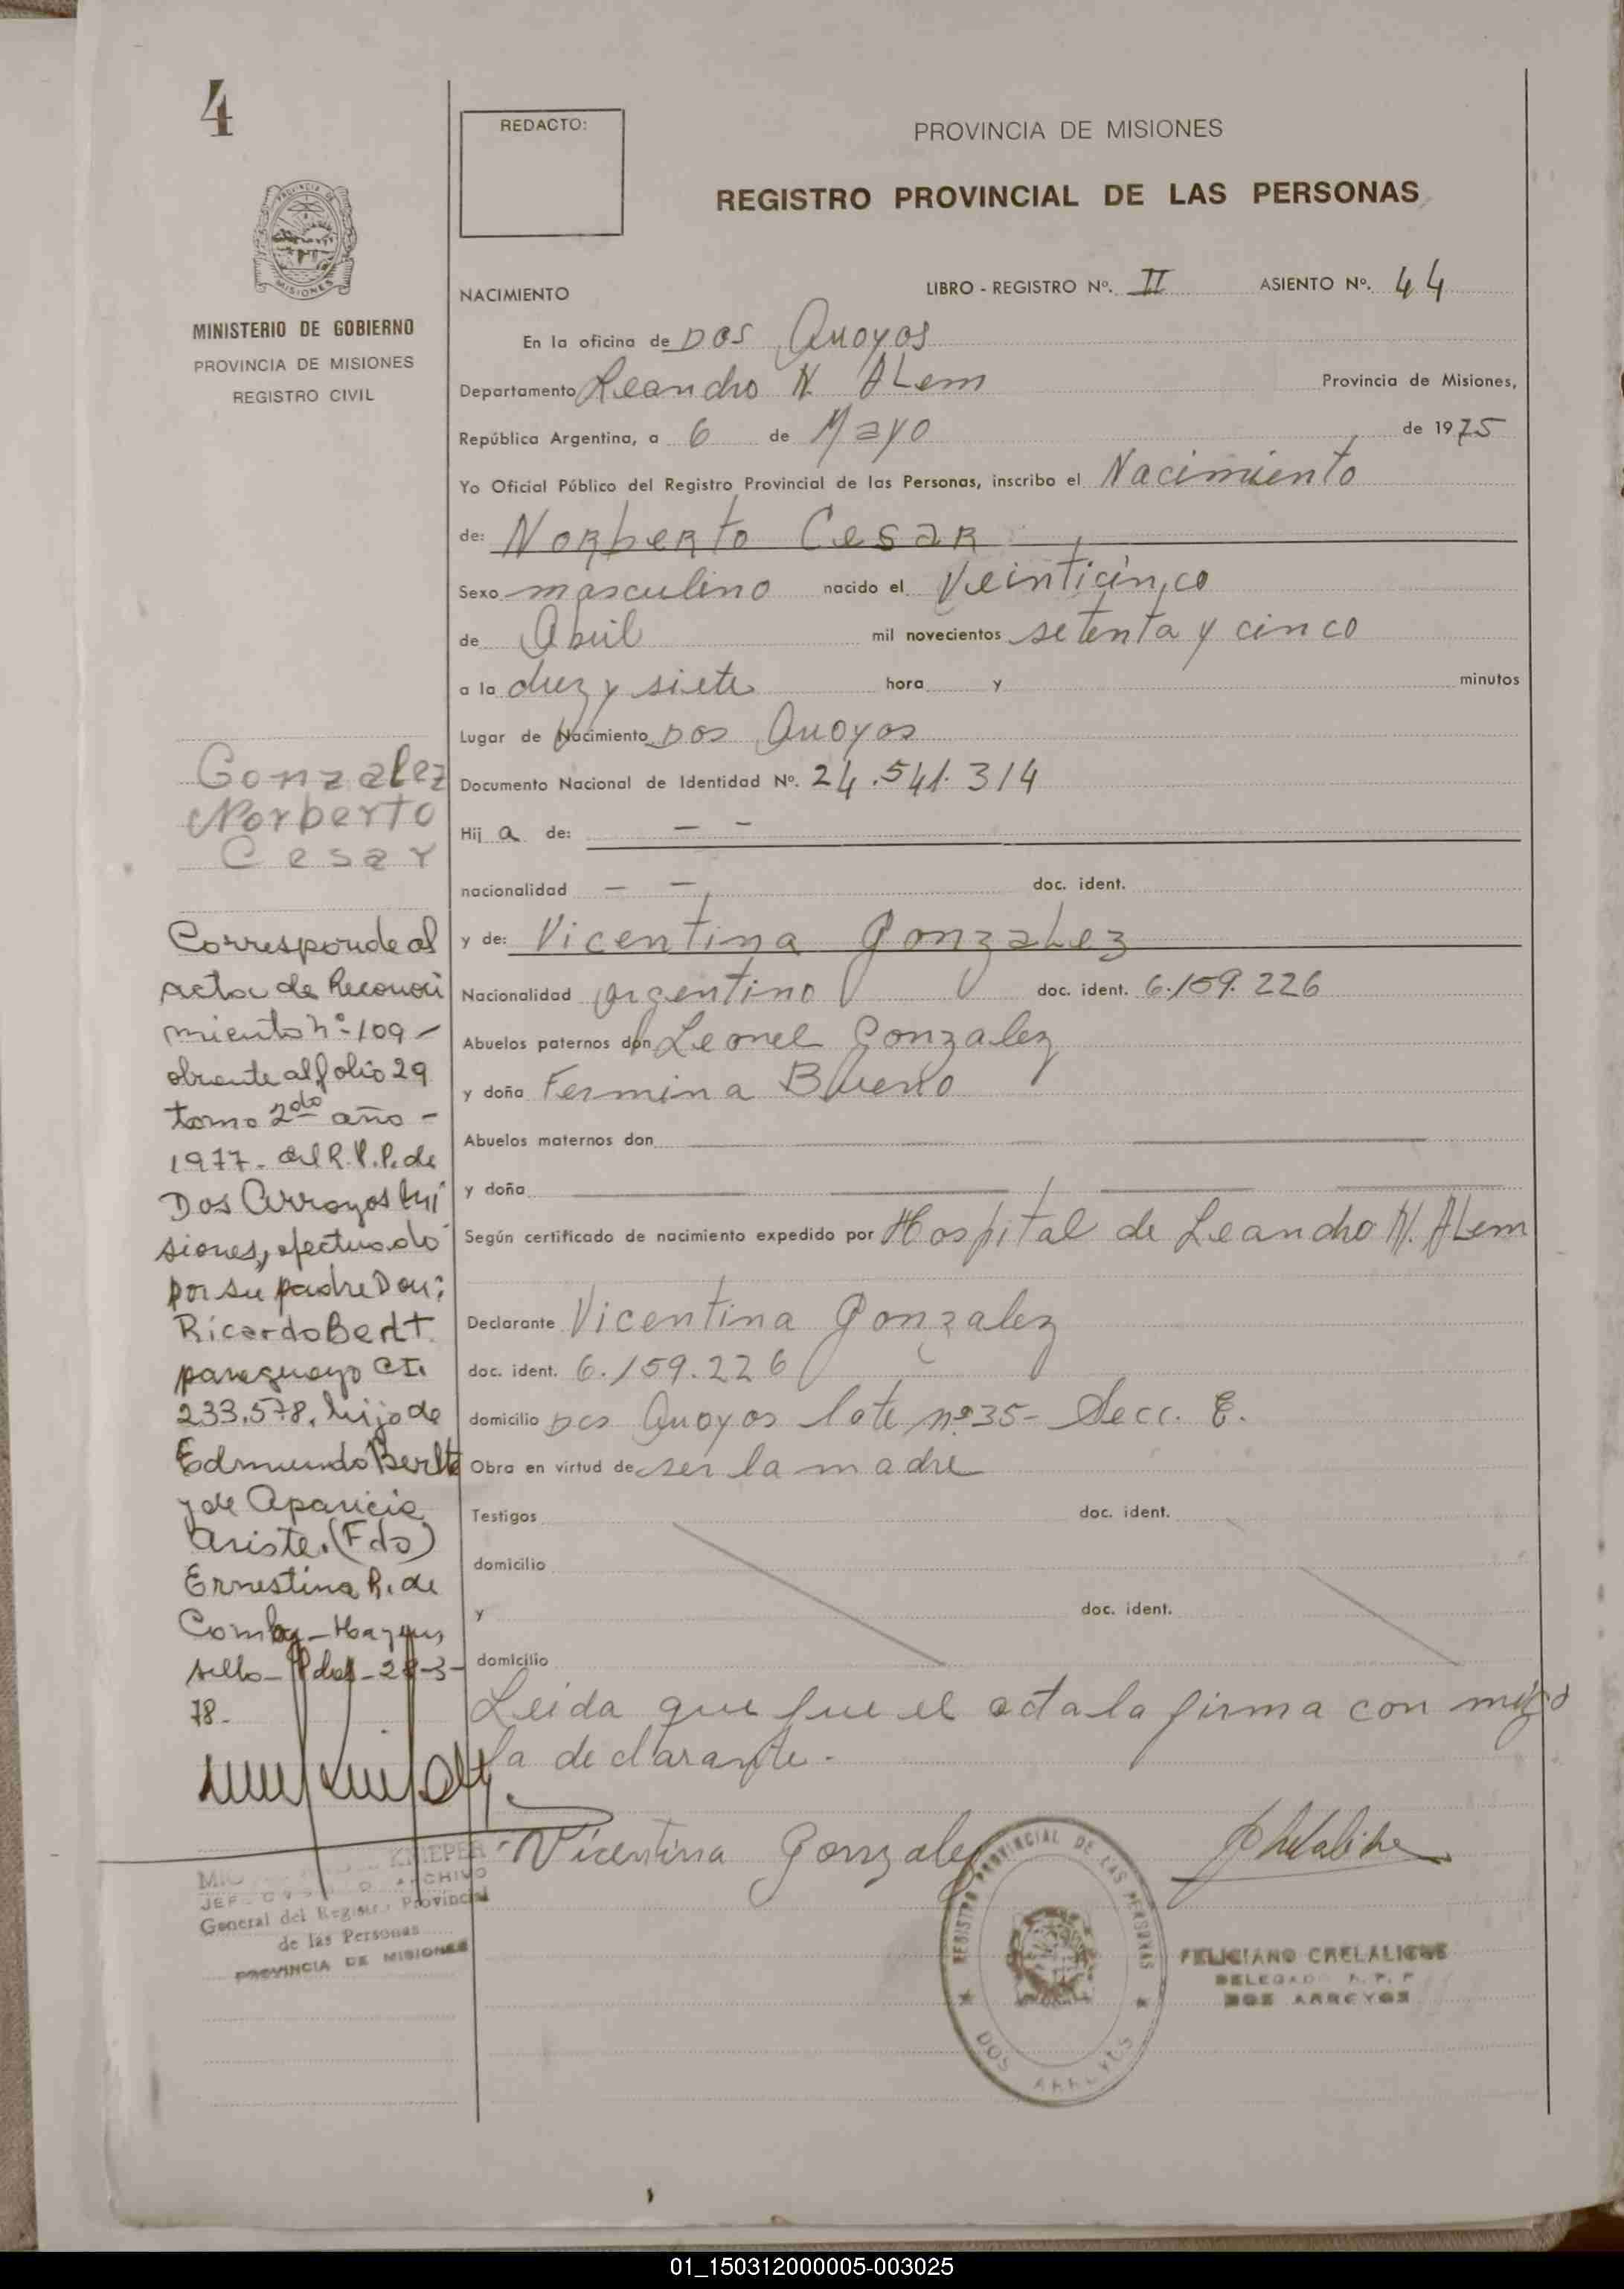 4
REDACTO:
PROVINCIA DE MISIONES
REGISTRO PROVINCIAL DE LAS PERSONAS
MISIONES
MINISTERIO DE GOBIERNO
PROVINCIA DE MISIONES
REGISTRO CIVIL
NACIMIENTO
LIBRO - REGISTRO Nº. II ASIENTO Nº. 44
En la oficina de Dos Arroyos
Departamento Leandro N. Alem Provincia de Misiones,
República Argentina, a 6 de Mayo de 1975
Yo Oficial Público del Registro Provincial de las Personas, inscribo el Nacimiento
de: Norberto Cesar
Sexo masculino nacido el Veinticinco
de Abril mil novecientos setenta y cinco
a la diez y siete hora y minutos
Lugar de Nacimiento Dos Arroyos
Documento Nacional de Identidad Nº. 24.541.314
Hij a de: — —
nacionalidad — — doc. ident.
y de: Vicentina Gonzalez
Nacionalidad argentino doc. ident. 6.159.226
Abuelos paternos don Leonel Gonzalez
y doña Fermina Bueno
Abuelos maternos don
y doña
Según certificado de nacimiento expedido por Hospital de Leandro N. Alem
Declarante Vicentina Gonzalez
doc. ident. 6.159.226
domicilio Dos Arroyos lote nº 35- Secc. E.
Obra en virtud de ser la madre
Testigos doc. ident.
domicilio
y doc. ident.
domicilio
Leida que fue el acta la firma con migo
la declarante.
Vicentina Gonzalez
Gonzalez
Norberto
Cesar
Corresponde al
acta de Reconoci
miento nº 109 -
obrante al folio 29
tomo 2do año -
1977 - del R.P.P. de
Dos Arroyos Mi
siones, efectuado
por su padre Don:
Ricardo Bertt
paraguayo CI.
233.578. hijo de
Edmundo Berltt
y de Aparicia
Ariste. (Fdo)
Ernestina R. de
Comby - Hay un
sello - Pdas - 28-3-
78.
KNIEPER
General del Registro Provincial
de las Personas
PROVINCIA DE MISIONES
REGISTRO PROVINCIAL DE LAS PERSONAS
DOS ARROYOS
FELICIANO CHELALICHE
DELEGADO R. P. P.
DOS ARROYOS
01_150312000005-003025